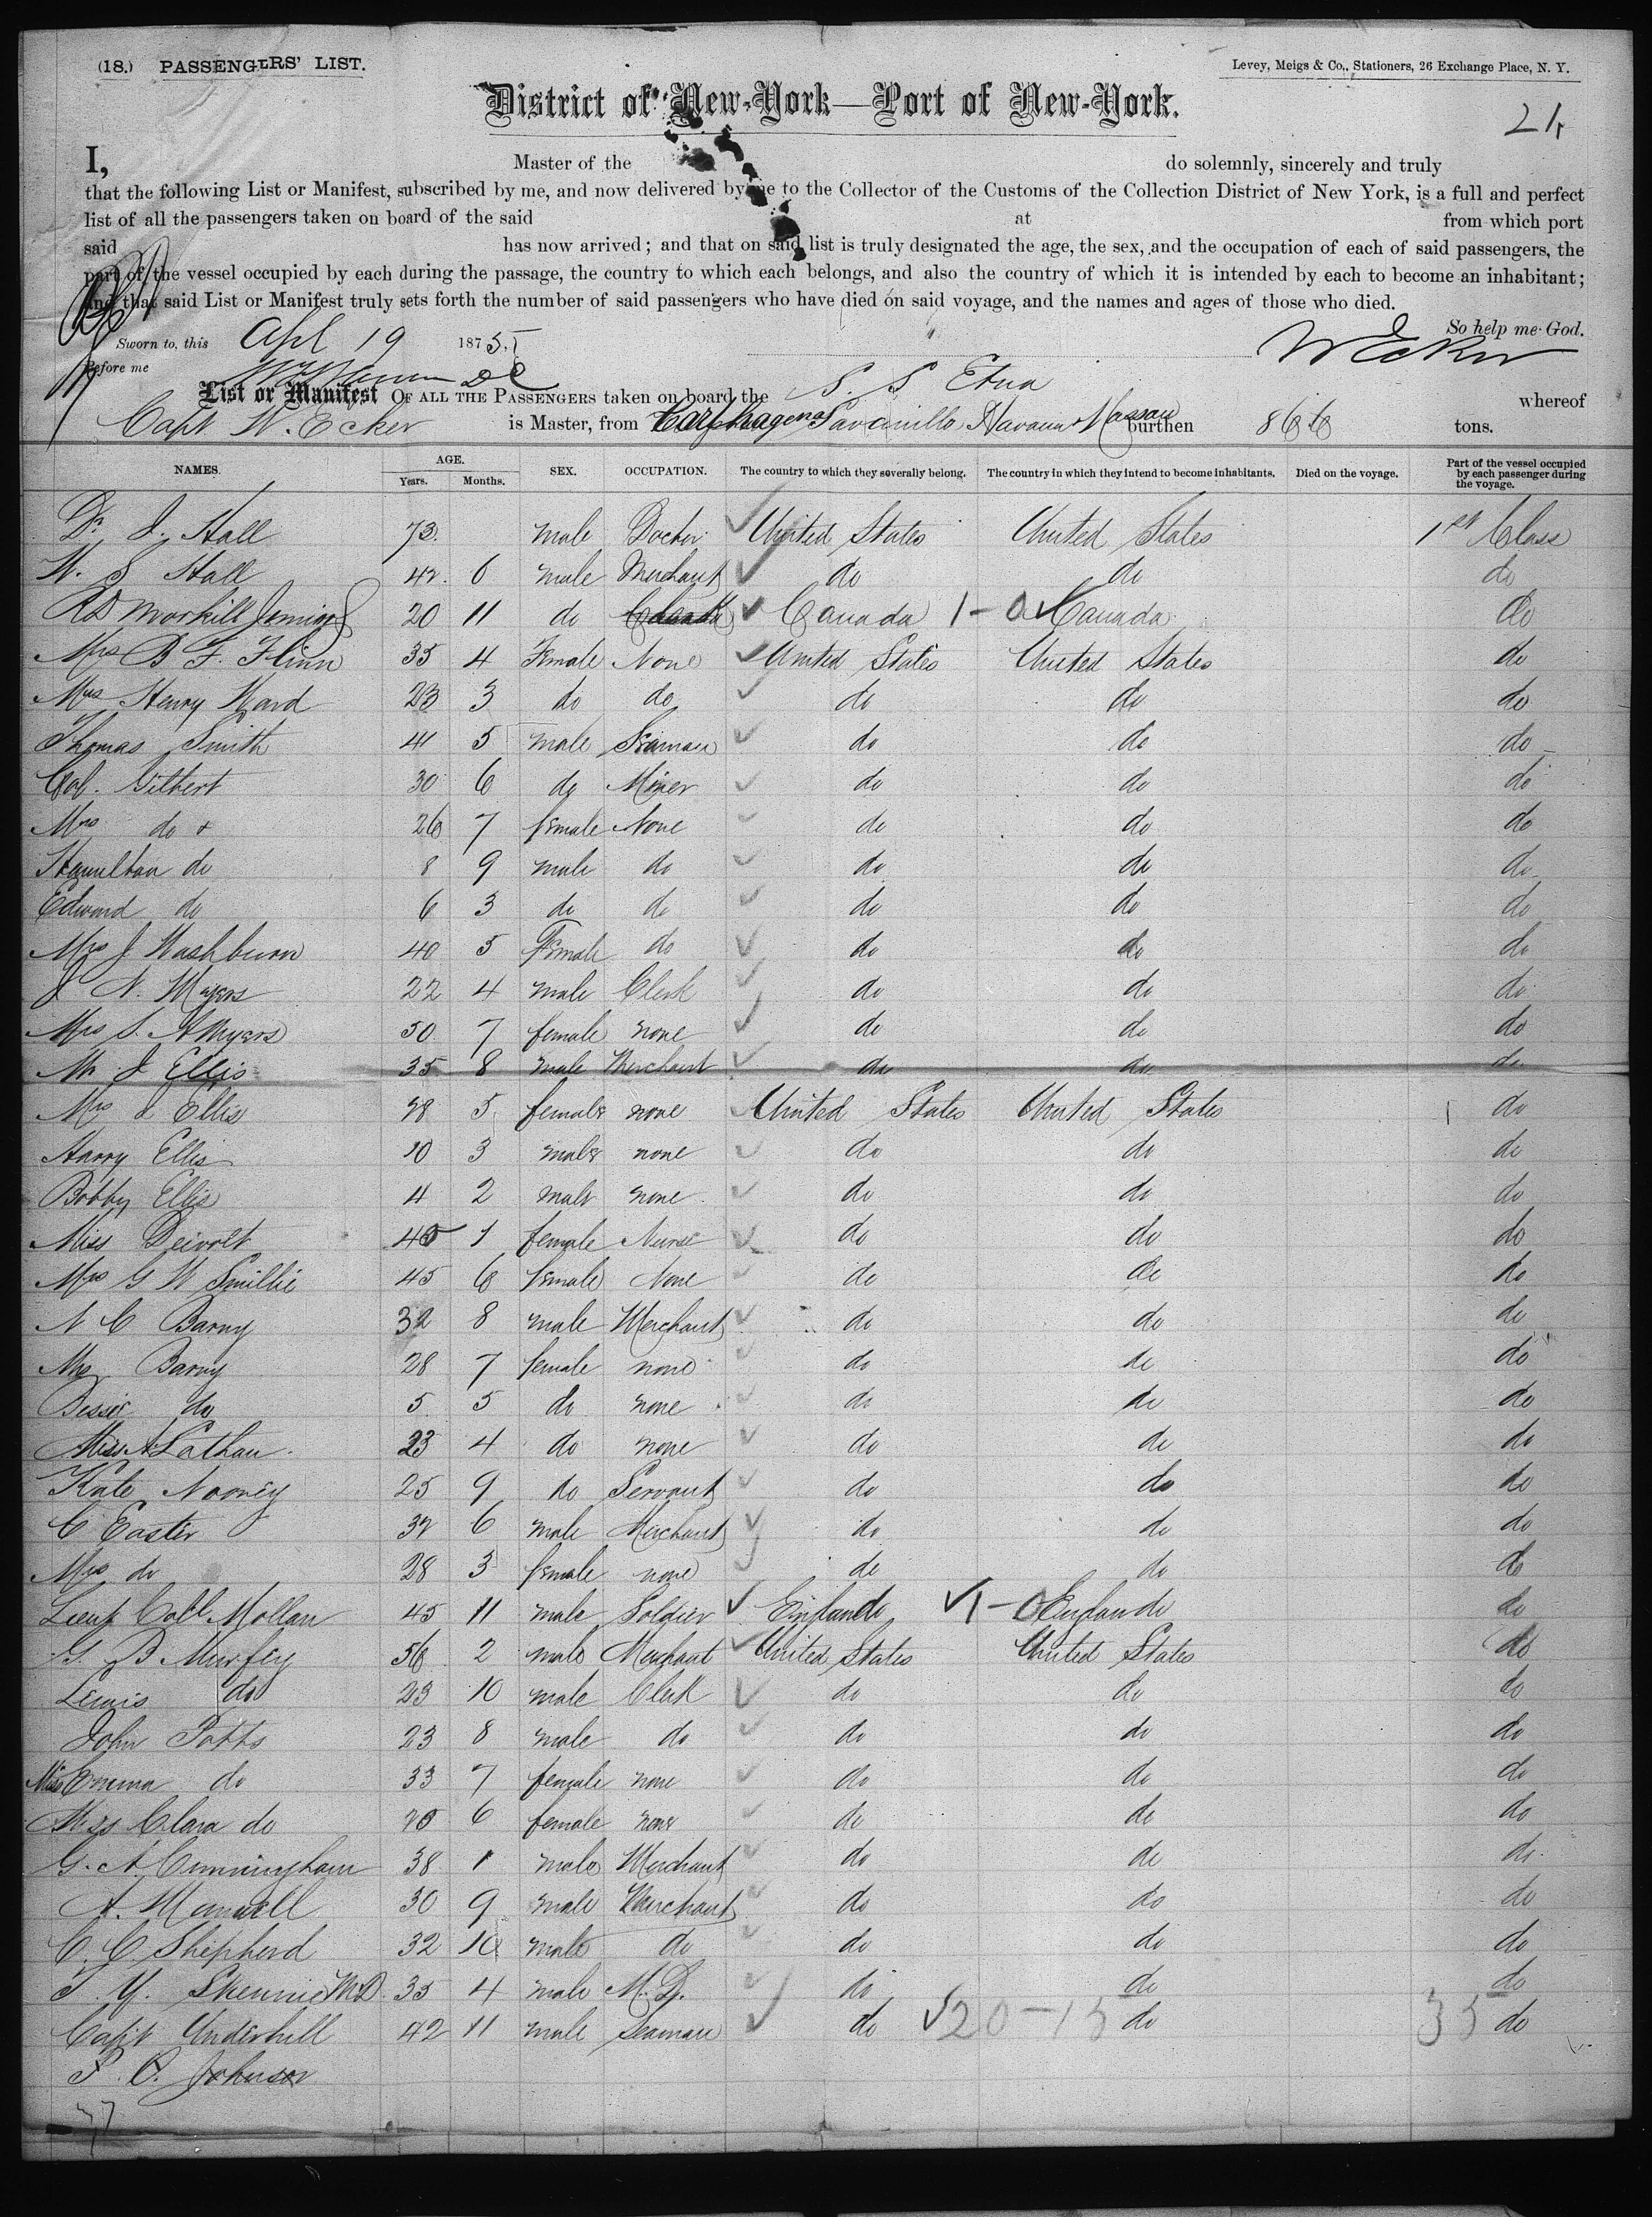 (18.) PASSENGERS' LIST. Levey, Meigs & Co., Stationers, 26 Exchange Place, N. Y.
District of New-York—Port of New-York.
21,
I, Master of the do solemnly, sincerely and truly
that the following List or Manifest, subscribed by me, and now delivered by me to the Collector of the Customs of the Collection District of New York, is a full and perfect
list of all the passengers taken on board of the said at from which port
said has now arrived; and that on said list is truly designated the age, the sex, and the occupation of each of said passengers, the
part of the vessel occupied by each during the passage, the country to which each belongs, and also the country of which it is intended by each to become an inhabitant;
and that said List or Manifest truly sets forth the number of said passengers who have died on said voyage, and the names and ages of those who died.
So help me God.
Sworn to, this Apl 19 1875, W Ecker
Before me
List or Manifest OF ALL THE PASSENGERS taken on board the S. S Etna whereof
Capt W. Ecker is Master, from Carthagena Savanillo Havana & Nassau burthen 866 tons.
NAMES. AGE. Years. Months. SEX. OCCUPATION. The country to which they severally belong. The country in which they intend to become inhabitants. Died on the voyage. Part of the vessel occupied by each passenger during the voyage.
Dr. J. Hall 73. male Doctor United States United States 1st Class
W. S Hall 42. 6 male Merchant do do do
Morkill 20 11 do Canada 1-0 Canada do
Mrs B F. Flinn 35 4 Female None United States United States do
Mrs Henry Ward 23 3 do do do do do
Thomas Smith 41 5 male Seaman do do do
Col. Gilbert 30 6 do Miner do do do
Mrs do + 26 7 female None do do do
Hamilton do 8 9 male do do do do
Edward do 6 3 do do do do do
Mrs J Washburn 40 5 Female do do do do
J N. Myers 22 4 male Clerk do do do
Mrs S. A Myers 50 7 female none do do do
Mr J Ellis 35 8 male Merchant do do do
Mrs J Ellis 28 5 female none United States United States do
Harry Ellis 10 3 male none do do do
Bobby Ellis 4 2 male none do do do
Miss Deivolt 45 1 female Nurse do do do
Mrs G W Smillie 45 6 female None do do do
N C Barny 32 8 male Merchant do do do
Mrs Barny 28 7 female none do do do
Bessie do 5 5 do none do do do
Miss A Lathau 23 4 do none do do do
Kate Nooney 25 9 do Servant do do do
C Easter 32 6 male Merchant do do do
Mrs do 28 3 female none do do do
Lieut Coll Mollan 45 11 male Soldier England 1-0 England do
G. B Murfey 56 2 male Merchant United States United States do
Lewis do 23 10 male Clerk do do do
John Potts 23 8 male do do do do
Miss Emma do 33 7 female none do do do
Miss Clara do 25 6 female none do do do
G. A Cunningham 38 1 male Merchant do do do
A. Maxwell 30 9 male Merchant do do do
C. C Shepherd 32 10 male do do do do
T. Y. M.D. 35 4 male M. D. do do do
Capt Underhill 42 11 male Seaman do 20-15 do 35 do
P. O. Johnson
37